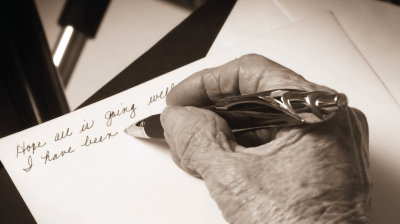 Hope all is going well
I have been